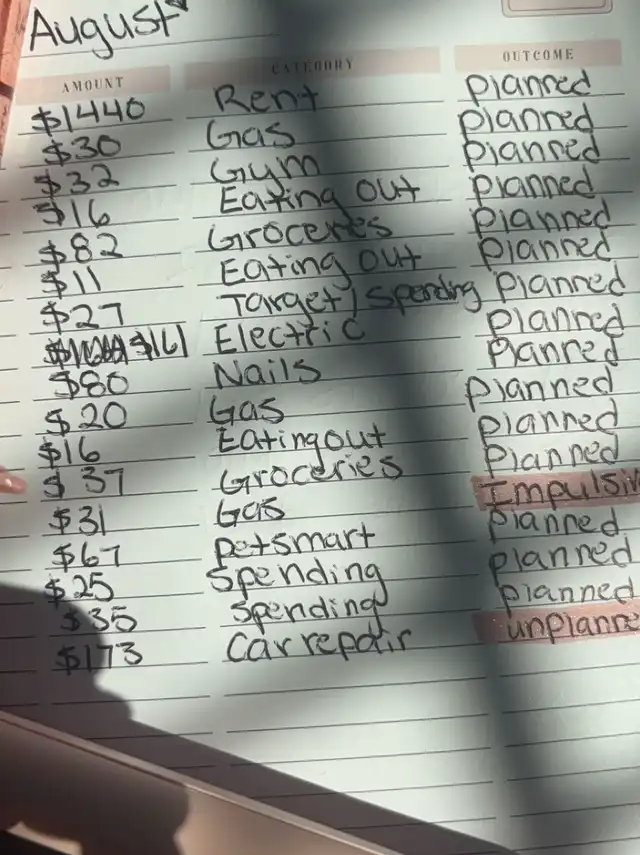 August
AMOUNT CATEGORY OUTCOME
$1440 Rent planned
$30 Gas planned
$32 Gym planned
$16 Eating out planned
$82 Groceries planned
$11 Eating out planned
$27 Target/spending planned
$161 Electric planned
$80 Nails planned
$20 Gas planned
$16 Eating out planned
$37 Groceries planned
$31 Gas Impulsiv
$67 petsmart planned
$25 Spending planned
$35 Spending planned
$173 Car repair unplanne